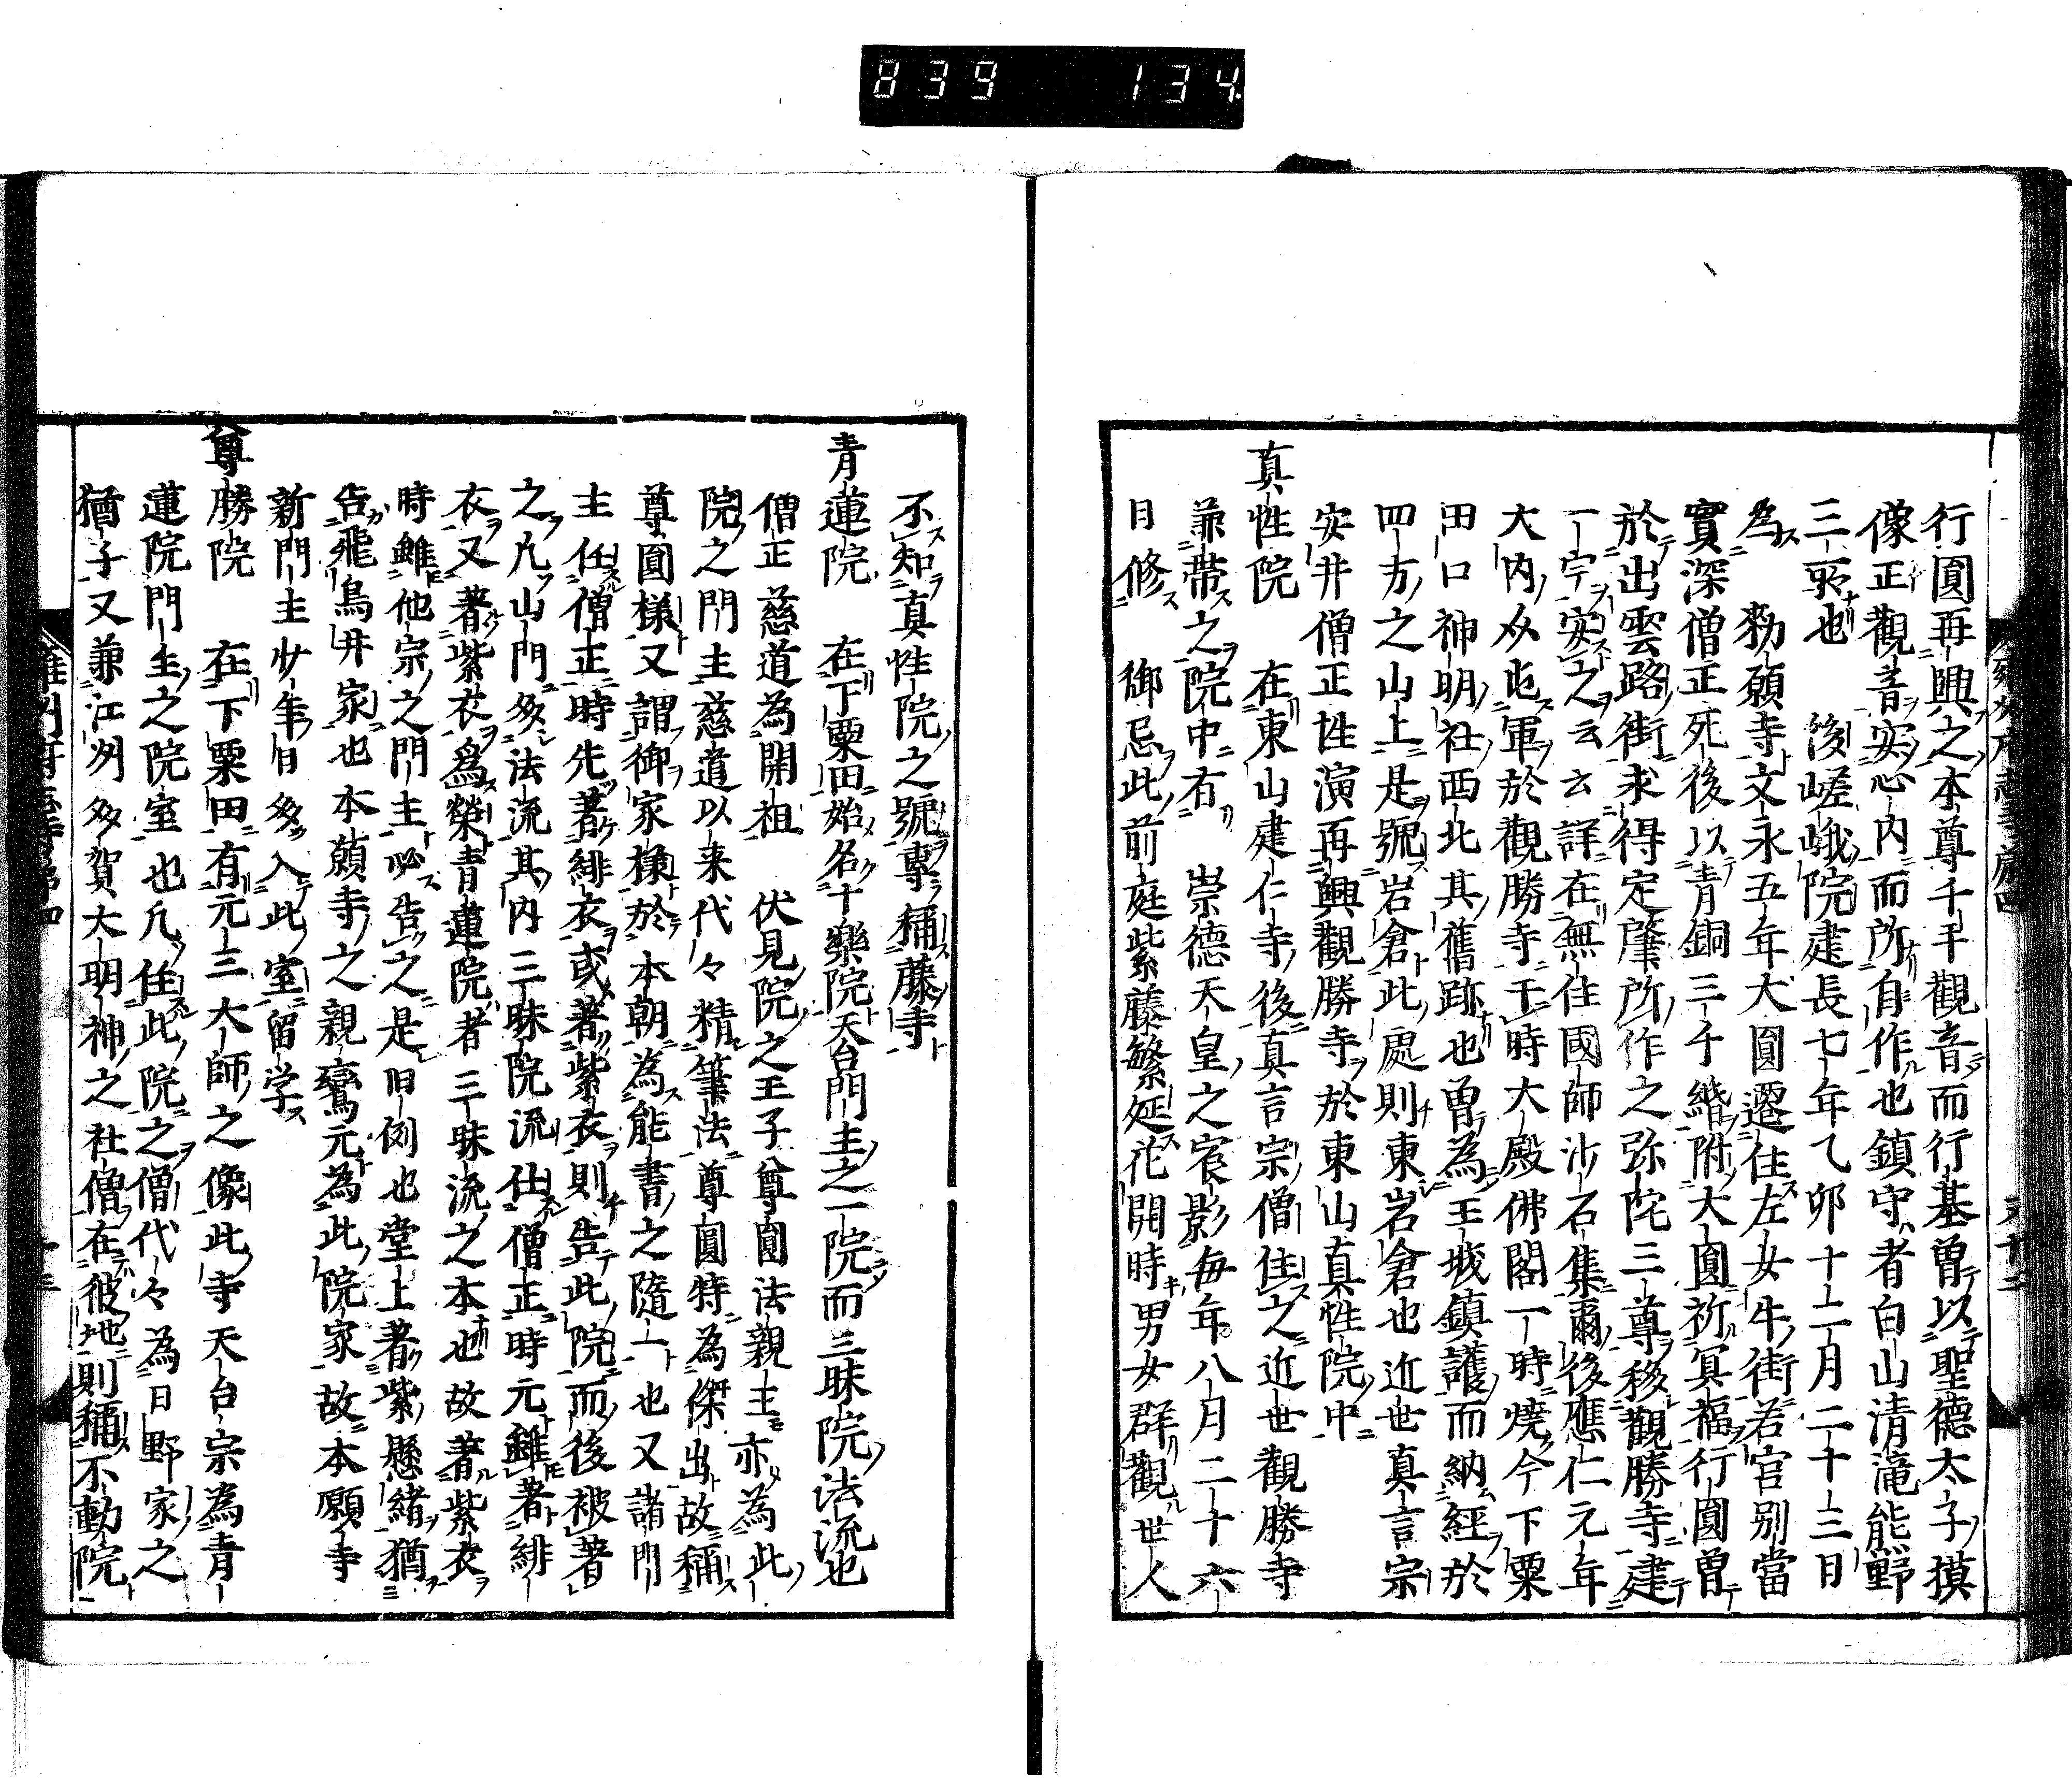 839 134
行圓再興之本尊千手觀音而行基曽以聖德太子摸
像正觀音安心内而所自作也鎮守者白山清滝熊野
三耶也 後嵯峨院建長七年乙卯十二月二十三日
為 勅願寺文永五年大圓遷住左女牛街若宮別當
實深僧正死後以青銅三千緡附大圓祈冥福行圓曽
於出雲路街求得定肇所作之弥陀三尊移觀勝寺建
一宇安之云云詳在無住國師沙石集爾後應仁元年
大内 屯軍於觀勝寺于時大殿佛閣一時燒今下粟
田口神明社西北其舊跡也曽為王城鎮護而納經於
四方之山上是號岩倉此處則東岩倉也近世真言宗
安井僧正性演再興觀勝寺於東山真性院中
真性院 在東山建仁寺後真言宗僧住之近世觀勝寺
兼帯之院中有 崇德天皇之宸影毎年八月二十六
日修 御忌此前庭紫藤繁延花開時男女群觀世人
不知真性院之號專稱藤寺
青蓮院 在下粟田始名十樂院天台門主之一院而三昧院法流也
僧正慈道為開祖 伏見院之王子尊圓法親王亦為此
院之門主慈道以来代々精筆法尊圓特為傑出故稱
尊圓様又謂御家様於本朝為能書之隨一也又諸門
主任僧正時先著緋衣或著紫衣則告此院而後被著
之凡山門多法流其内三昧院流任僧正時元雖著緋
衣又著紫衣為榮青蓮院者三昧流之本也故著紫衣
時雖他宗之門主必告之是旧例也堂上著紫懸緒猶
告飛鳥井家也本願寺之親鸞元為此院家故本願寺
新門主少年日多入此室留学
尊勝院 在下粟田有元三大師之像此寺天台宗為青
蓮院門主之院室也凡住此院之僧代々為日野家之
猶子又兼江州多賀大明神之社僧在彼地則稱不動院